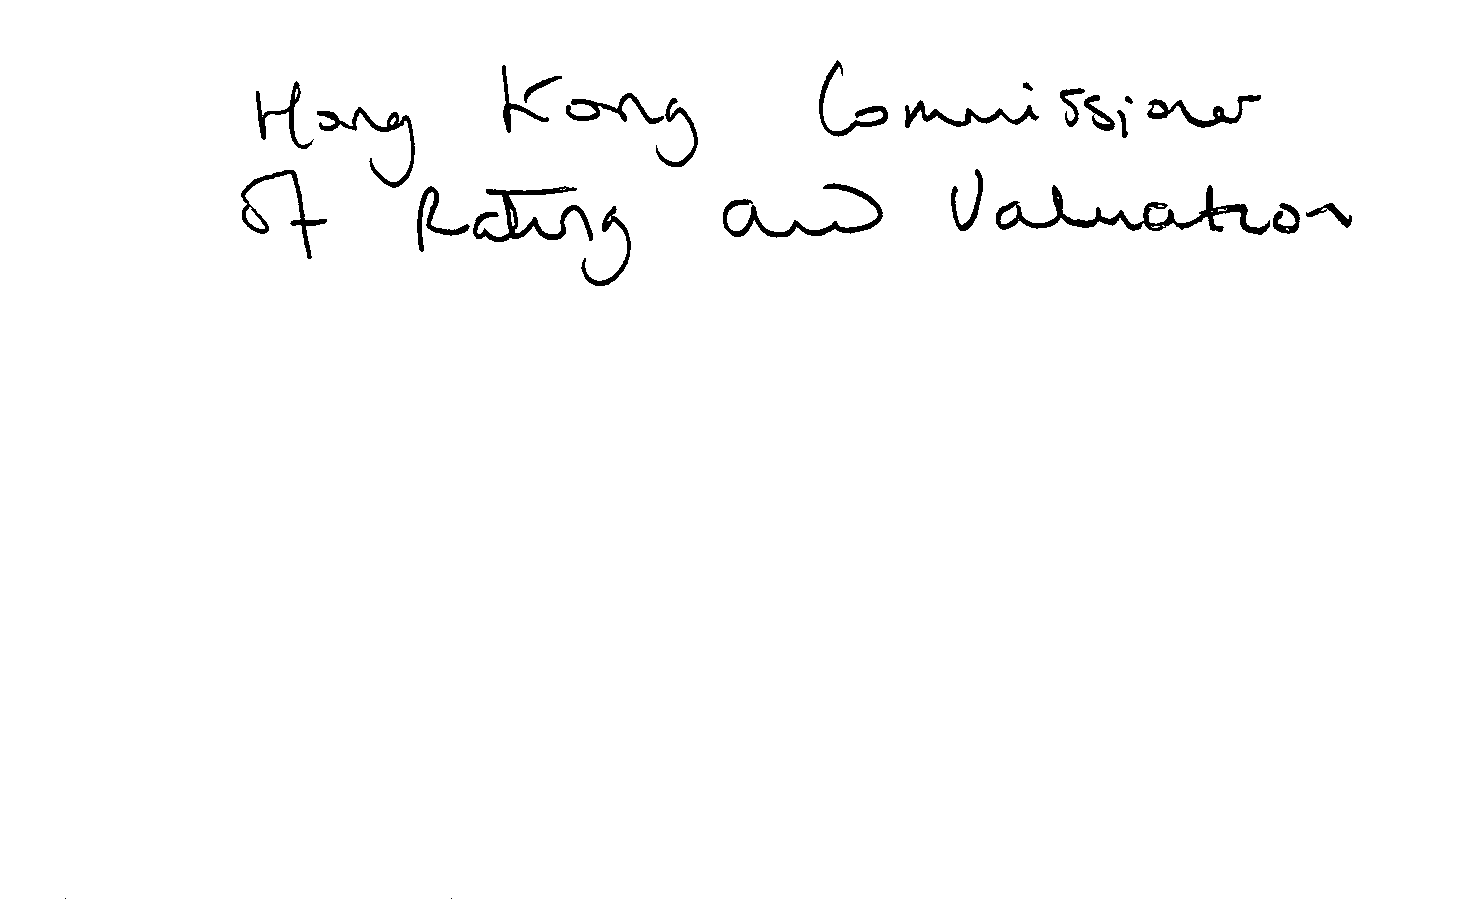 Hong Kong Commissioner
of Rating and Valuation